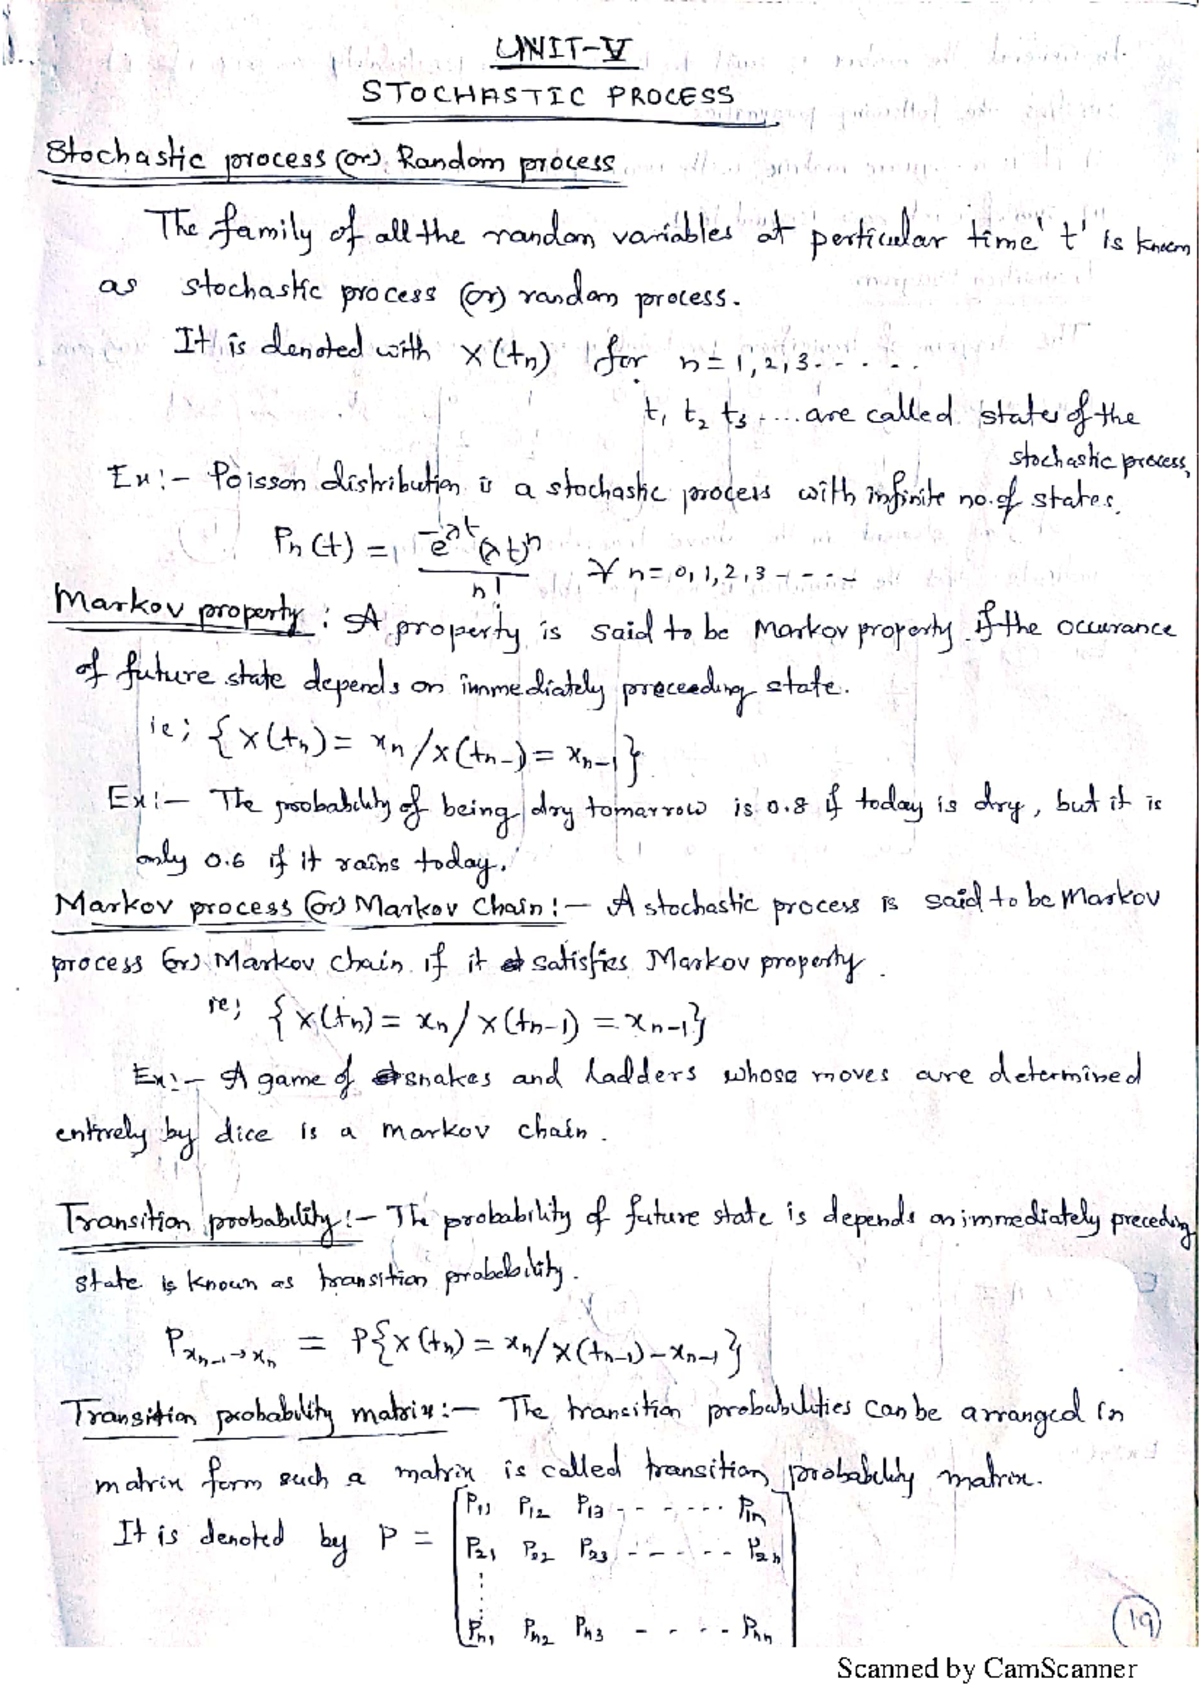 UNIT-V
STOCHASTIC PROCESS
Stochastic process (or) Random process
The family of all the random variables at perticular time 't' is known
as stochastic process (or) random process.
It is denoted with X(tn) for n = 1, 2, 3 - - - . . .
t1 t2 t3 . . . . are called states of the
stochastic process,
Ex:- Poisson distribution is a stochastic process with infinite no. of states.
Pn(t) = e^-λt (λt)^n / n! ∀ n = 0, 1, 2, 3 - - - -
Markov property : A property is said to be Markov property if the occurance
of future state depends on immediately preceeding state.
ie; {X(tn) = xn / X(tn-1) = xn-1}
Ex:- The probability of being dry tomarrow is 0.8 if today is dry, but it is
only 0.6 if it rains today.
Markov process (or) Markov Chain :- A stochastic process is said to be Markov
process (or) Markov chain if it satisfies Markov property.
ie; {X(tn) = xn / X(tn-1) = xn-1}
Ex:- A game of snakes and ladders whose moves are determined
entirely by dice is a markov chain.
Transition probability :- The probability of future state is depends on immediately preceding
state is known as transition probability.
Pxn-1→xn = P{X(tn) = xn / X(tn-1) - xn-1}
Transition probability matrix :- The transition probabilities can be arranged in
matrix form such a matrix is called transition probability matrix.
It is denoted by P =
P11 P12 P13 - - - - - - P1n
P21 P22 P23 - - - - - - P2n
Pn1 Pn2 Pn3 - - - - - Pnn
19
Scanned by CamScanner